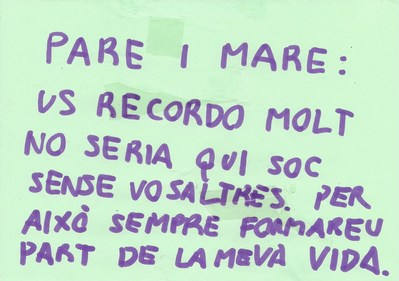 PARE I MARE:
US RECORDO MOLT
NO SERIA QUI SOC
SENSE VOSALTRES. PER
AIXÒ SEMPRE FORMAREU
PART DE LA MEVA VIDA.